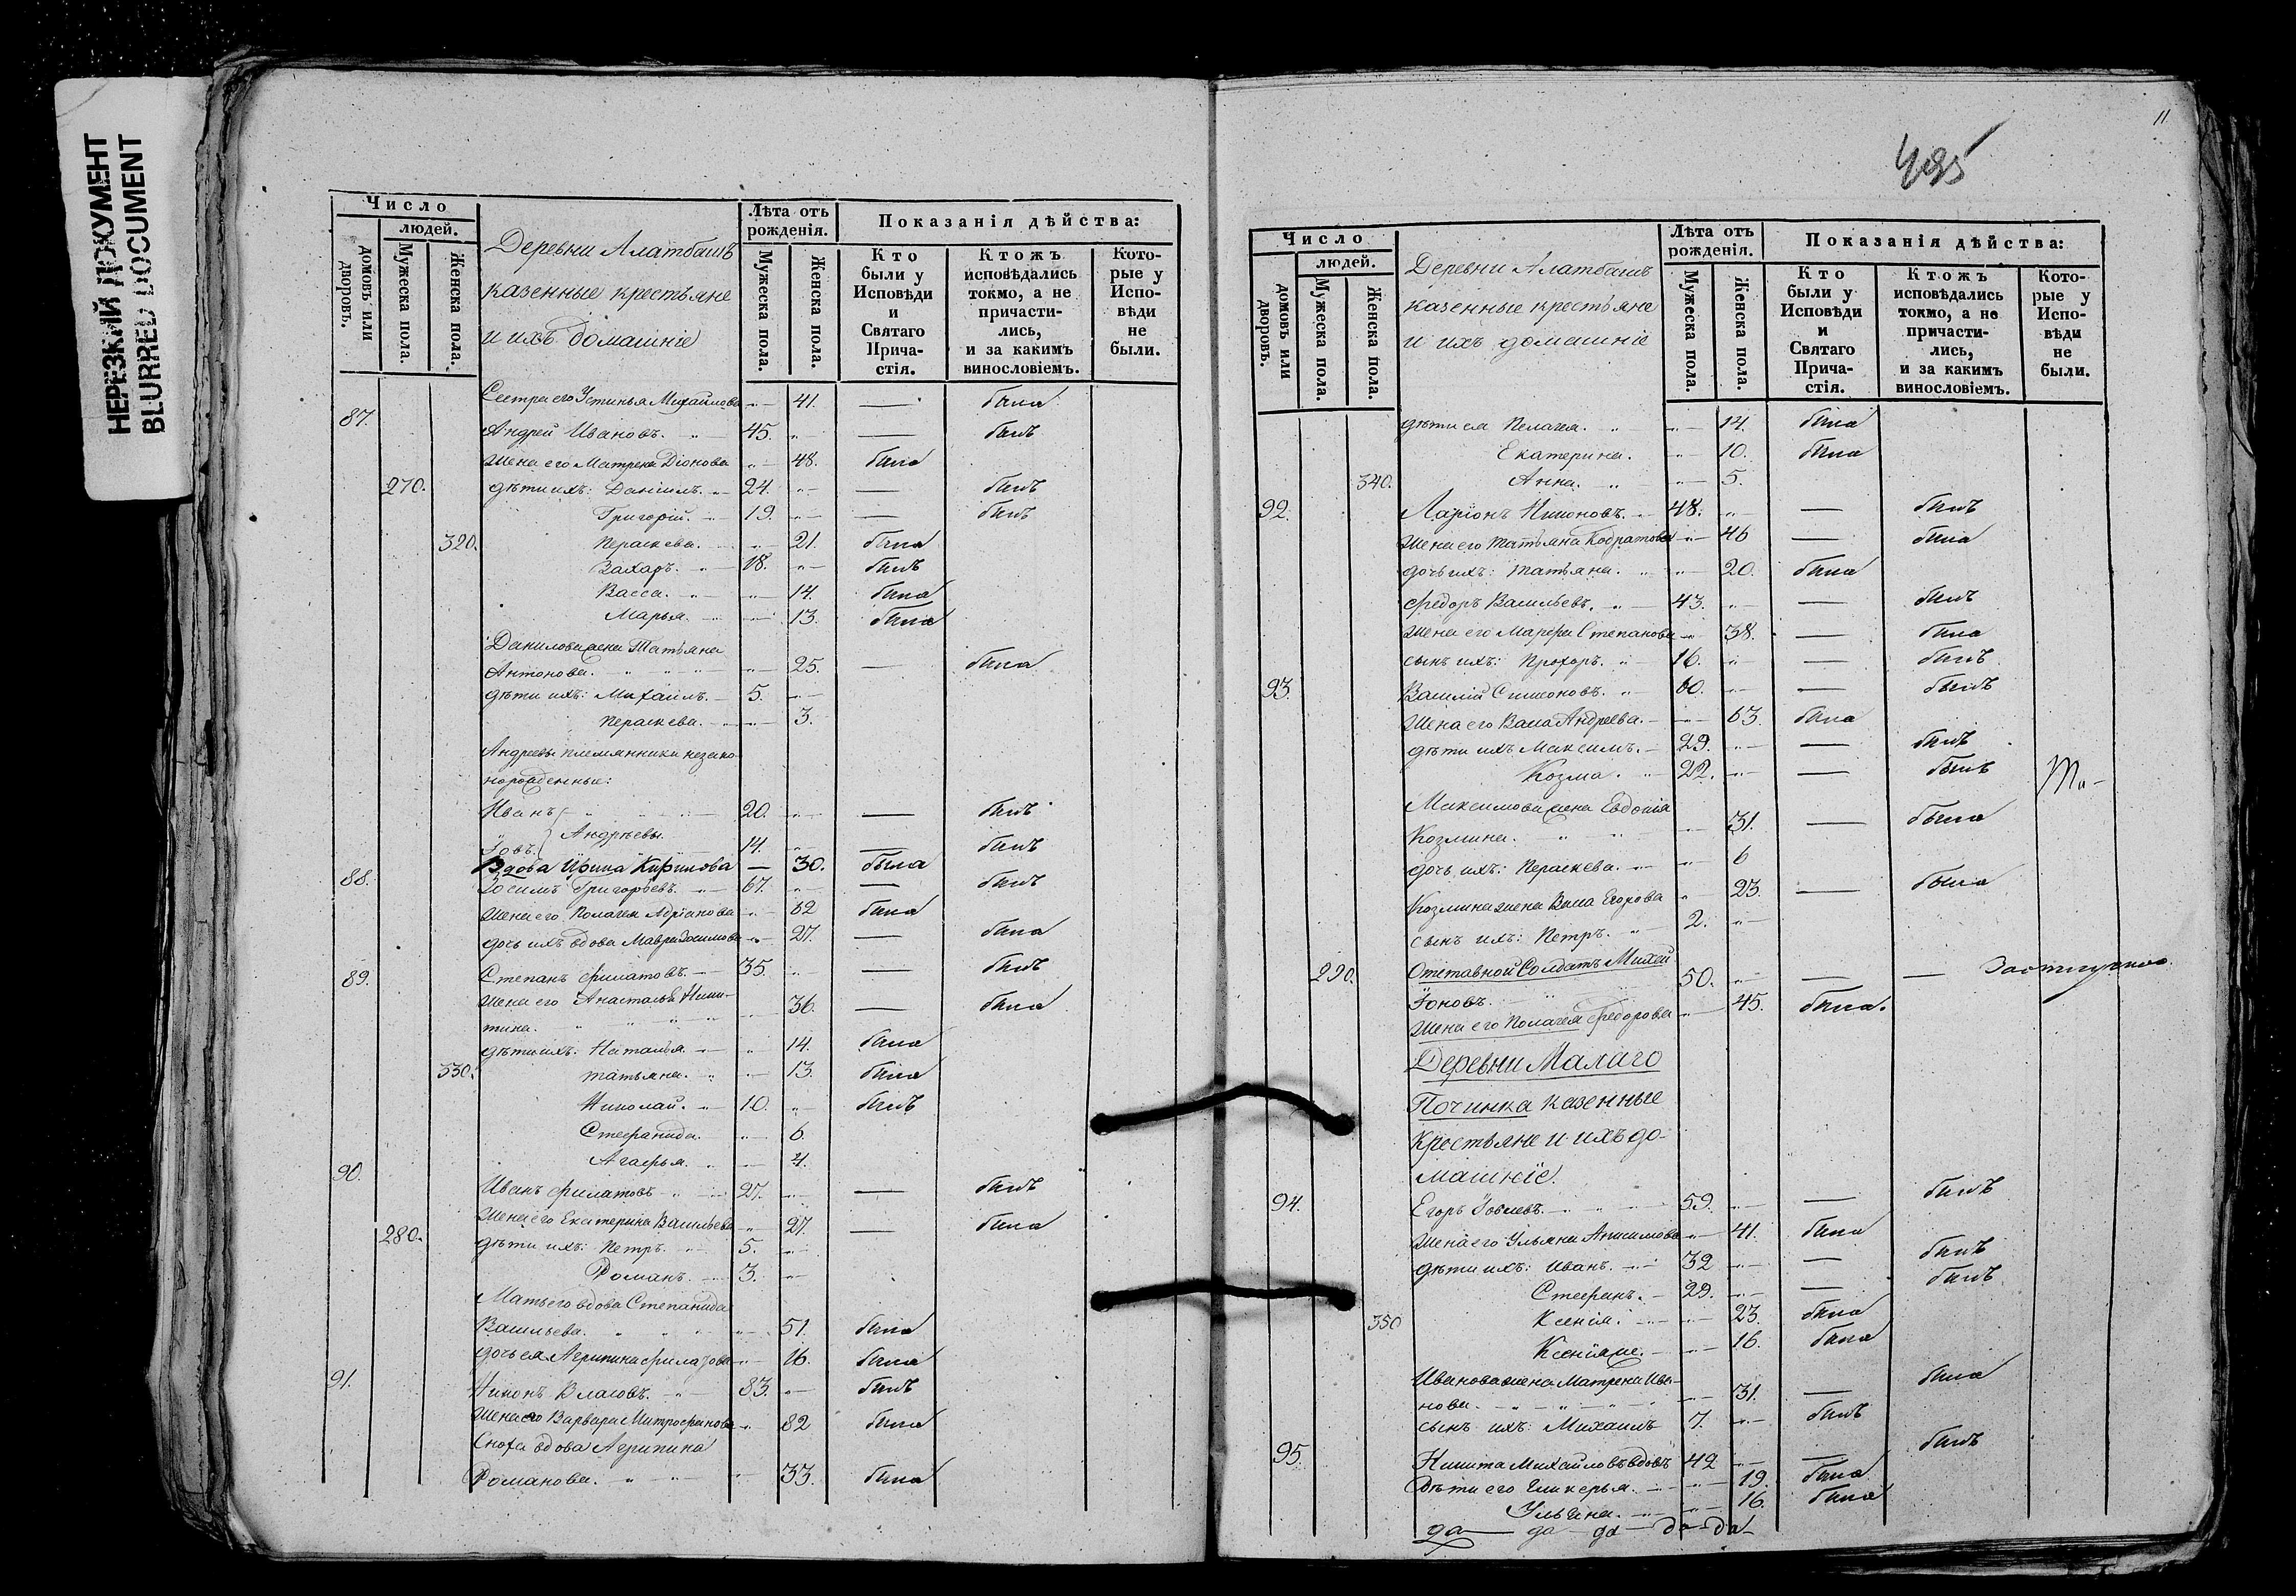 НЕРЕЗКИЙ ДОКУМЕНТ
BLURRED DOCUMENT
Число
людей.
домовъ или дворовъ.
Мужеска пола.
Женска пола.
Деревни Алатбашъ
казенные крестьяне
и ихъ домашніе
Лѣта отъ рожденія.
Мужеска пола.
Женска пола.
Показанія дѣйства:
Кто были у Исповѣди и Святаго Причастія.
Ктожъ исповѣдались токмо, а не причастились, и за какимъ винословіемъ.
Которые у Исповѣди не были.
Сестра его Устинья Михайлова 41. — была
87. Андрей Ивановъ. 45. — былъ
Жена его Матрена Діонова 48. была
270. дѣти ихъ: Даніилъ. 24. — былъ
Григорій. 19. — былъ
320. Параскева. 21. была
Захаръ. 18. былъ
Васса. 14. была
Марья. 13. была
Данилова жена Татьяна
Антонова. 25. — была
дѣти ихъ: Михаилъ. 5.
Параскева. 3.
Андреевы племянники незако-
норожденные:
Иванъ 20. — былъ
Андрѣевы.
Іовъ. 14. — былъ
Вдова Ирина Кирилова — 30. была
88. Зосимъ Григорьевъ. 67. — былъ
Жена его Пелагея Адріанова 62 была
дочь ихъ вдова Мавра Зосимова 27. — была
89. Степанъ Филатовъ. 35. — былъ
Жена его Анастасья Ники-
тина. 36. — была
дѣти ихъ: Наталья 14. была
330. Татьяна. 13. была
Николай. 10. былъ
Стефанида. 6.
Агафья. 4.
90. Иванъ Филатовъ 27. — былъ
Жена его Екатерина Васильева 27. — была
280. дѣти ихъ: Петръ. 5.
Романъ. 3.
Мать его вдова Степанида
Васильева. 51. была
дочь ея Агрипина Филатова 16. была
91. Никонъ Власовъ. 83. былъ
Жена его Варвара Митрофанова 82 была
Сноха вдова Агрипина
Романова. 33. была
11
495
Число
людей.
домовъ или дворовъ.
Мужеска пола.
Женска пола.
Деревни Алатбашъ
казенные крестьяне
и ихъ домашніе
Лѣта отъ рожденія.
Мужеска пола.
Женска пола.
Показанія дѣйства:
Кто были у Исповѣди и Святаго Причастія.
Ктожъ исповѣдались токмо, а не причастились, и за какимъ винословіемъ.
Которые у Исповѣди не были.
дѣти ея Пелагея. 14. была
Екатерина. 10. была
340. Анна. 5.
92. Ларіонъ Никоновъ. 48. — былъ
Жена его Татьяна Кодратова 46 — была
дочь ихъ: Татьяна. 20. была
Федоръ Васильевъ. 43. — былъ
Жена его Марфа Степанова 38. — была
сынъ ихъ: Прохоръ. 16. — былъ
93. Василій Симоновъ. 60. — былъ
Жена его Васа Андреева. 63. была
дѣти ихъ Максимъ. 29. — былъ
Козма. 22. — былъ
Максимова жена Евдокія
Козмина. 31. — была
дочь ихъ: Параскева. 6
Козмина жена Васа Егорова 23. — была
сынъ ихъ: Петръ. 2.
290. Отставной Солдатъ Михай
Іоновъ. 50. — —
Жена его Пелагея Федорова 45. была.
Деревни Малаго
Починка казенные
Крестьяне и ихъ до-
машніе.
94. Егоръ Іовлевъ. 59. — былъ
Жена его Ульяна Анисимова 41. была
дѣти ихъ: Иванъ. 32 — былъ
Стефанъ. 29. — былъ
350 Ксенія. 23. была
Ксенія же. 16. была
Иванова жена Матрена Ива-
нова. 31. — была
сынъ ихъ: Михаилъ 7. былъ
95. Никита Михайловъ вдовъ 42 — былъ
Дѣти его Гликерья. 19. была
Ульяна. 16. была
да — да — да — да — да